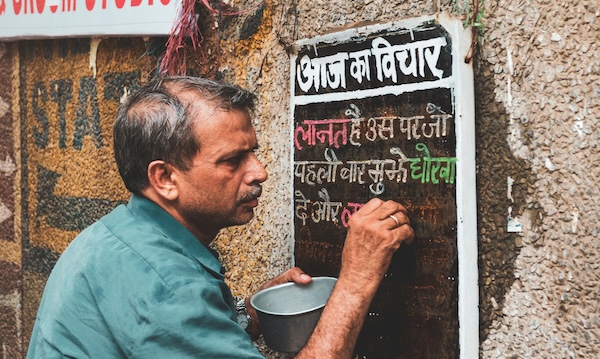 STAT
आज का विचार
लानत है उस पर जो
पहली बार मुझे धोखा
दे और